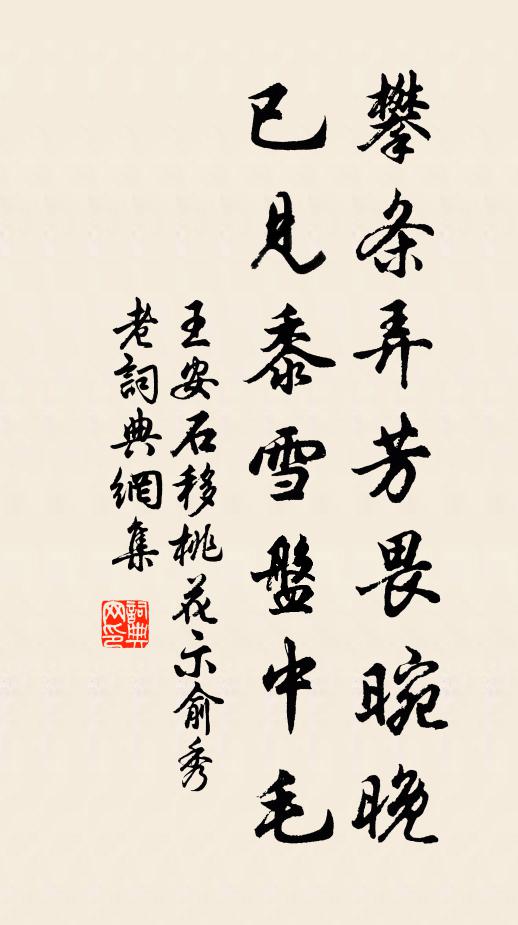 攀条弄芳畏晼晚
已见黍雪盤中毛
王安石移桃花示俞秀
老詞典網集
詞典
网印